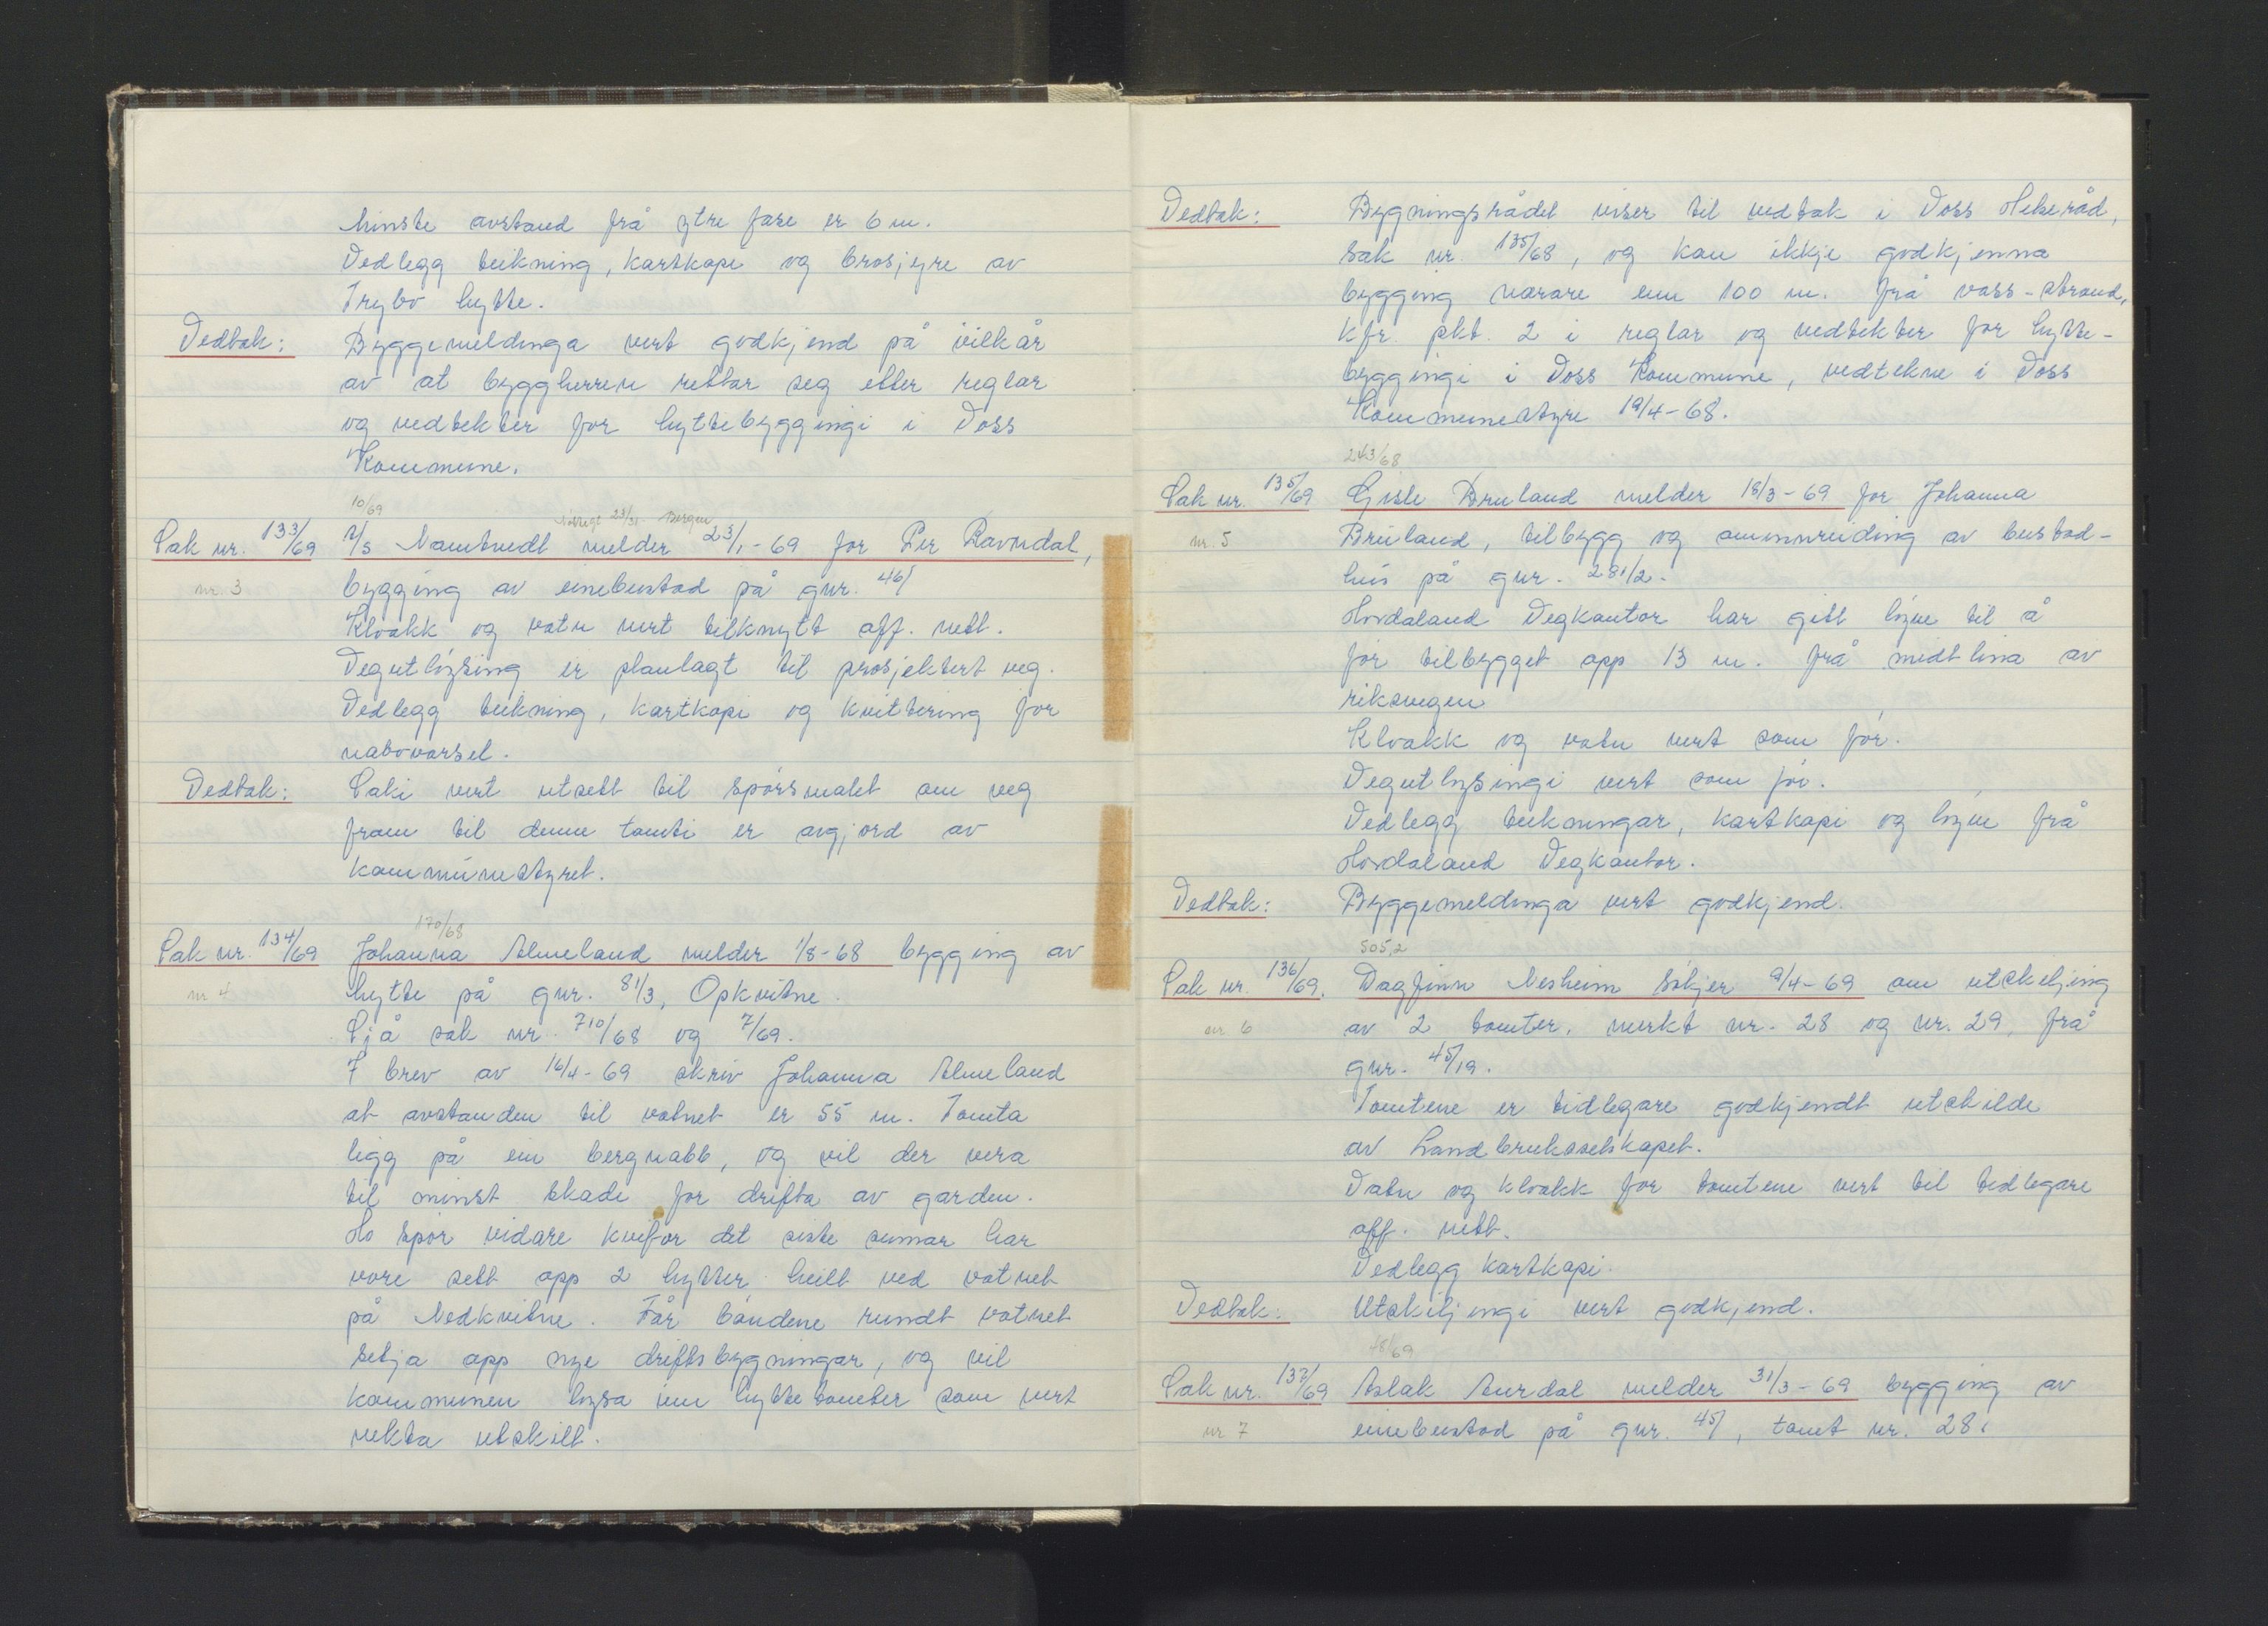 Minste avstand frå ytre fase er 6 m.
Vedlegg teikning, kartkopi og brosjyre av
Trybo hytte.
Vedtak: Byggemeldinga vert godkjend på vilkår
av at byggherren rettar seg etter reglar
og vedtekter for hyttebyggingi i Voss
Kommune.
10/69
Nattegt 23/31. Bergen
Sak nr. 133/69 A/S Namtvedt melder 23/1-69 for Per Ravndal,
nr. 3 bygging av einebustad på gnr. 46/
Kloakk og vatn vert tilknytt off. nett.
Vegutløysing er planlagt til prosjektert veg.
Vedlegg teikning, kartkopi og kvittering for
nabovarsel.
Vedtak: Saki vert utsett til spørsmålet om veg
fram til denne tomti er avgjord av
kommunestyret.
170/68
Sak nr. 134/69 Johanna Almeland melder 1/8-68 bygging av
nr 4 hytte på gnr. 81/3, Opkvitne.
Sjå sak nr. 710/68 og 7/69.
I brev av 16/4-69 skriv Johanna Almeland
at avstanden til vatnet er 55 m. Tomta
ligg på ein bergnabb, og vil der vera
til minst skade for drifta av garden.
Ho spør vidare kvifor det siste sumar har
vore sett opp 2 hytter heilt ved vatnet
på Nedkvitne. Får bøndene rundt vatnet
setja opp nye driftsbygningar, og vil
kommunen løysa inn hyttetomter som vert
nekta utskilt.
Vedtak: Bygningsrådet viser til vedtak i Voss Helseråd,
sak nr. 135/68, og kan ikkje godkjenna
bygging nærare enn 100 m. frå vass-strand,
kfr. pkt. 2 i reglar og vedtekter for hytte-
byggingi i Voss Kommune, vedtekne i Voss
Kommunestyre 19/4-68.
243/68
Sak nr. 135/69 Gisle Bruland melder 18/3-69 for Johanna
nr. 5 Bruland, tilbygg og ominnreiding av bustad-
hus på gnr. 281/2.
Hordaland Vegkontor har gitt løyve til å
før tilbygget opp 13 m. frå midtlina av
riksvegen
Kloakk og vatn vert som før.
Vegutløysingi vert som før.
Vedlegg teikningar, kartkopi og løyve frå
Hordaland Vegkontor.
Vedtak: Byggemeldinga vert godkjend.
505,2
Sak nr. 136/69. Dagfinn Nesheim søkjer 9/4-69 om utskiljing
nr 6 av 2 tomter, merkt nr. 28 og nr. 29, frå
gnr. 45/19.
Tomtene er tidlegare godkjendt utskilde
av Landbruksselskapet.
Vatn og kloakk for tomtene vert til tidlegare
off. nett.
Vedlegg kartkopi.
Vedtak: Utskiljingi vert godkjend.
48/69
Sak nr. 137/69 Aslak Aurdal melder 31/3-69 bygging av
nr 7 einebustad på gnr. 45/, tomt nr. 28,